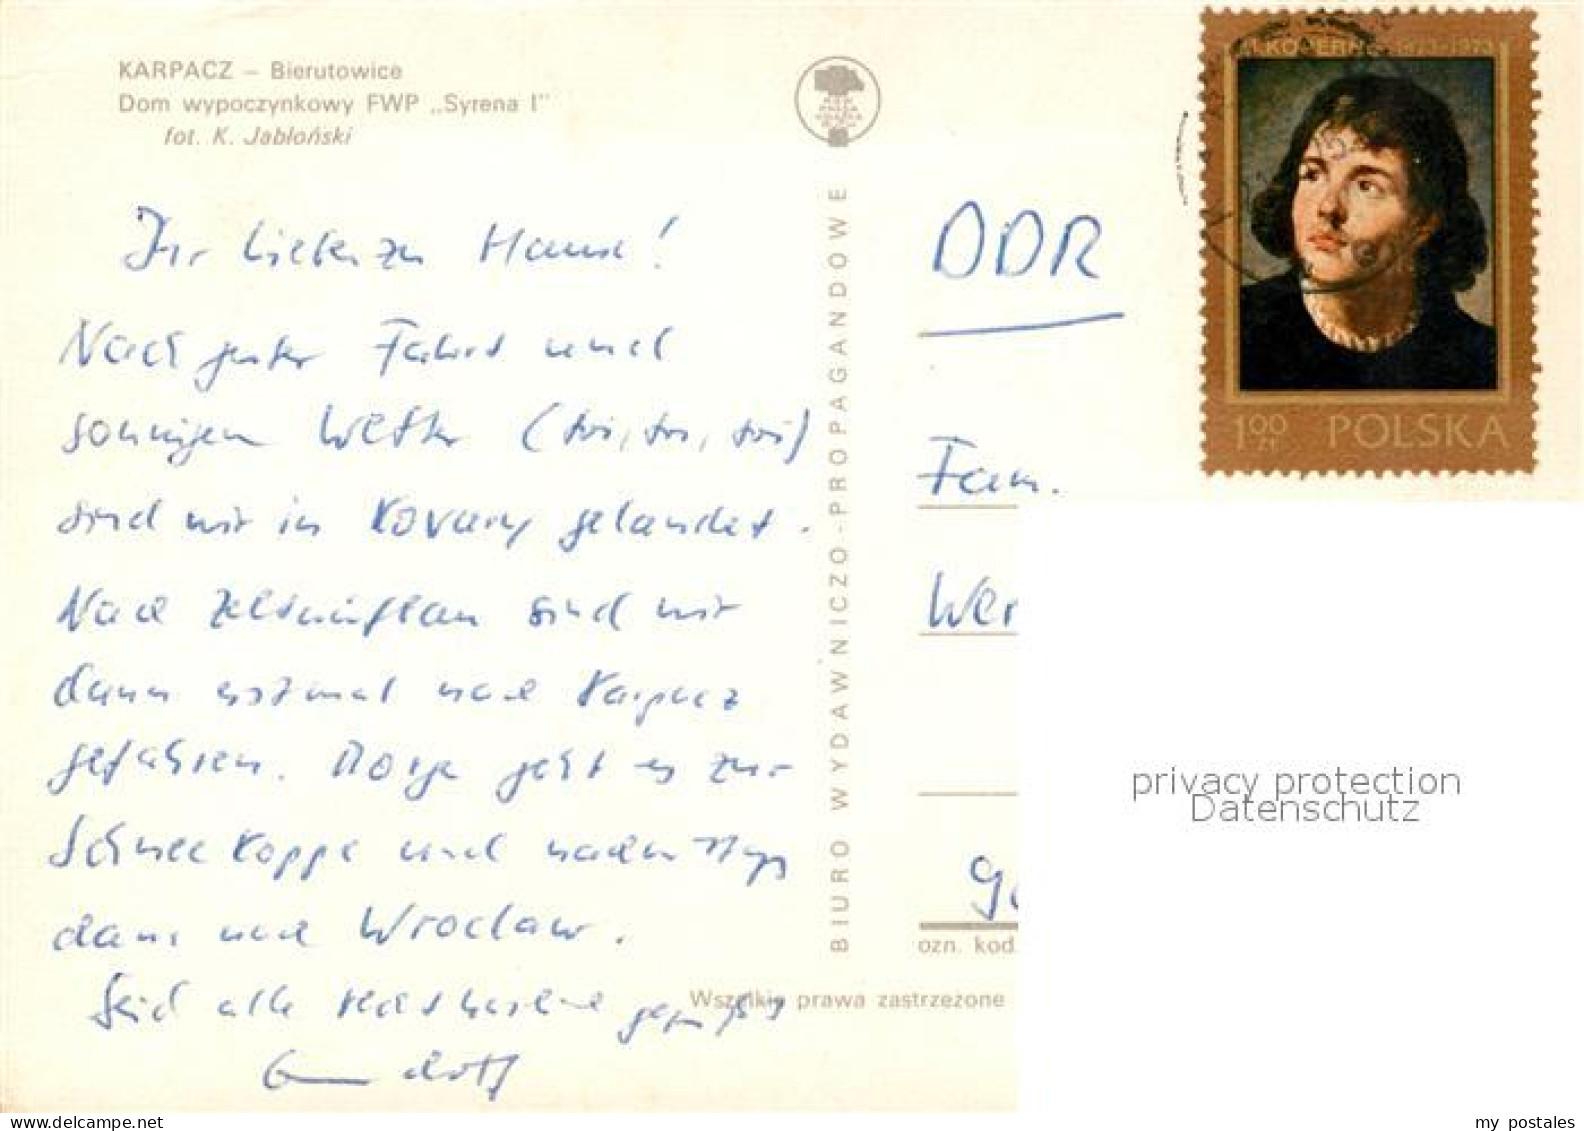 KARPACZ – Bierutowice
Dom wypoczynkowy FWP „Syrena I"
fot. K. Jabłoński
1.00 ZŁ POLSKA
Ihr Lieben zu Hause!
Nach guter Fahrt und
sonnigem Wetter
sind wir in Kovary gelandet.
Nach Zeltaufbau sind wir
dann erstmal nach Karpacz
gefahren. Morge geht es zur
Schneekoppe und
dann nach Wroclaw.
Seid alle recht herzlich gegrüßt
BIURO WYDAWNICZO-PROPAGANDOWE
DDR
Fam.
Wer
ozn. kod.
Wszelkie prawa zastrzeżone
privacy protection
Datenschutz
my postales